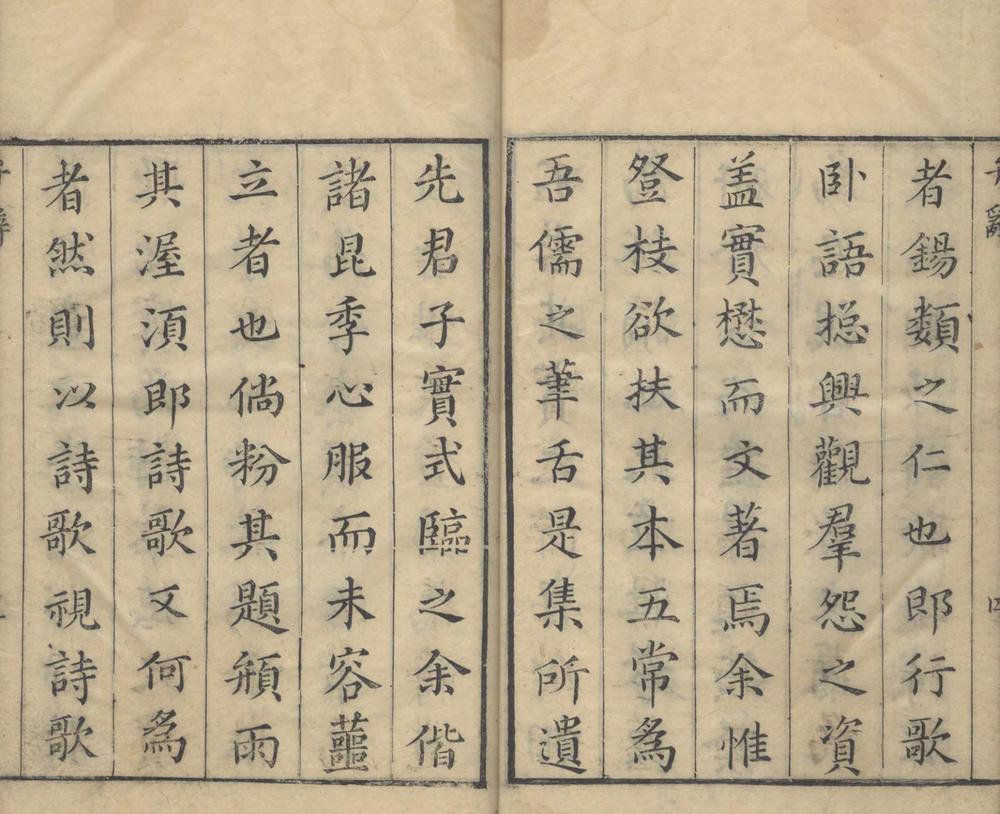 者錫類之仁也即行歌
卧語揔興觀羣怨之資
盖實懋而文著焉余惟
登枝欲扶其本五常為
吾儒之筆舌是集所遺
先君子實式臨之余偕
諸昆季心服而未容蘁
立者也倘粉其題頳雨
其渥湏即詩歌又何為
者然則以詩歌視詩歌